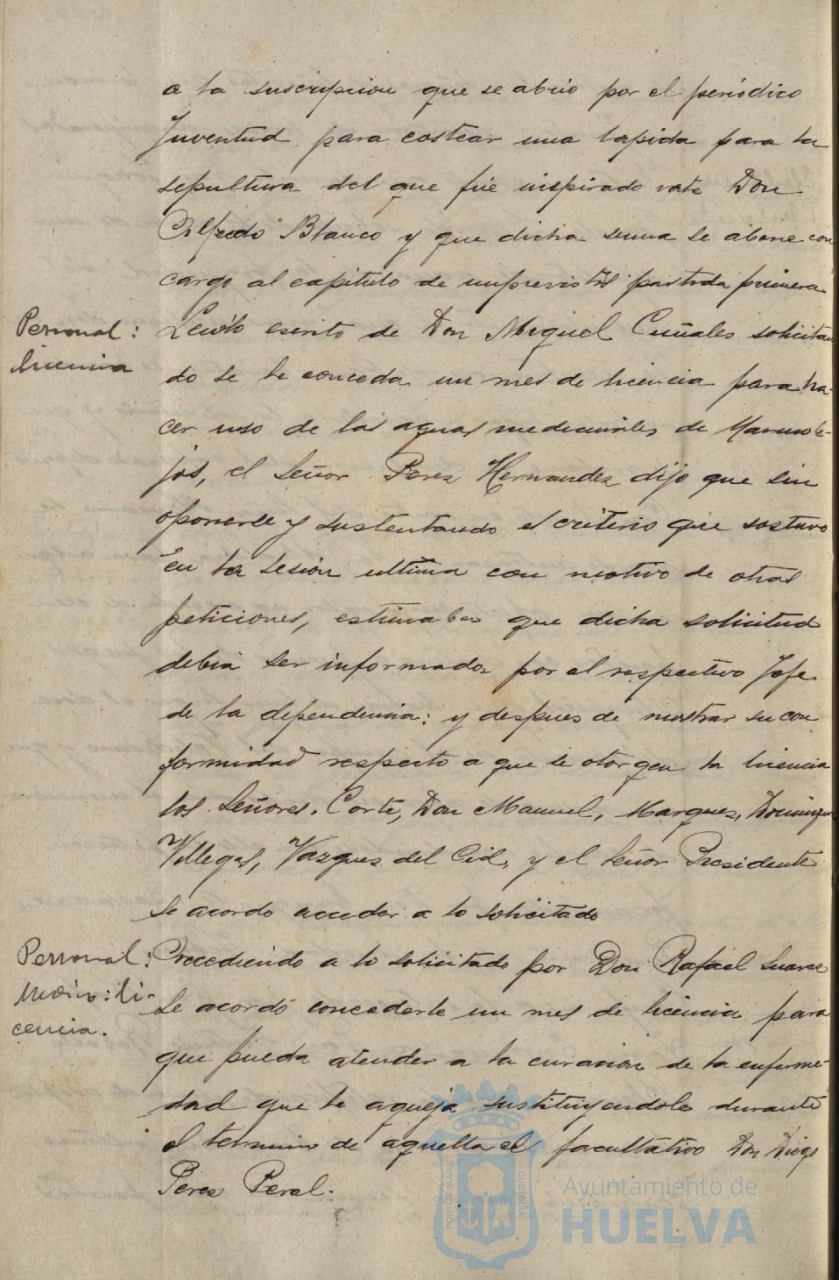 a la suscripcion que se abrio por el periódico
Juventud para costear una lapida para la
sepultura del que fué inspirado vate Don
Alfredo Blanco y que dicha suma se abone con
cargo al capitulo de imprevistos partida primera
Personal:
licencia
Leido escrito de Don Miguel solicitan
do se le conceda un mes de licencia para ha-
cer uso de las aguas medicinales de Marmole-
jos, el Señor Perez Hernandez dijo que sin
oponerse y sustentando el criterio que sostuvo
En la sesión ultima con motivo de otras
peticiones, estimaba que dicha solicitud
debia ser informada por el respectivo Jefe
de la dependencia: y despues de mostrar su con
formidad respecto a que le otorguen la licencia
los Señores. Corte, Don Manuel, Marquez, Dominguez
Villegas, Vazquez del Cid, y el Señor Presidente
se acordo acceder a lo solicitado
Personal:
li-
cencia.
a lo solicitado por Don Rafael Suarez
se acordó concederle un mes de licencia para
que pueda atender a la curacion de la enferme-
dad que le aqueja sustituyendole durante
el termino de aquella el facultativo Don Diego
Perez Peral.
Ayuntamiento de
HUELVA